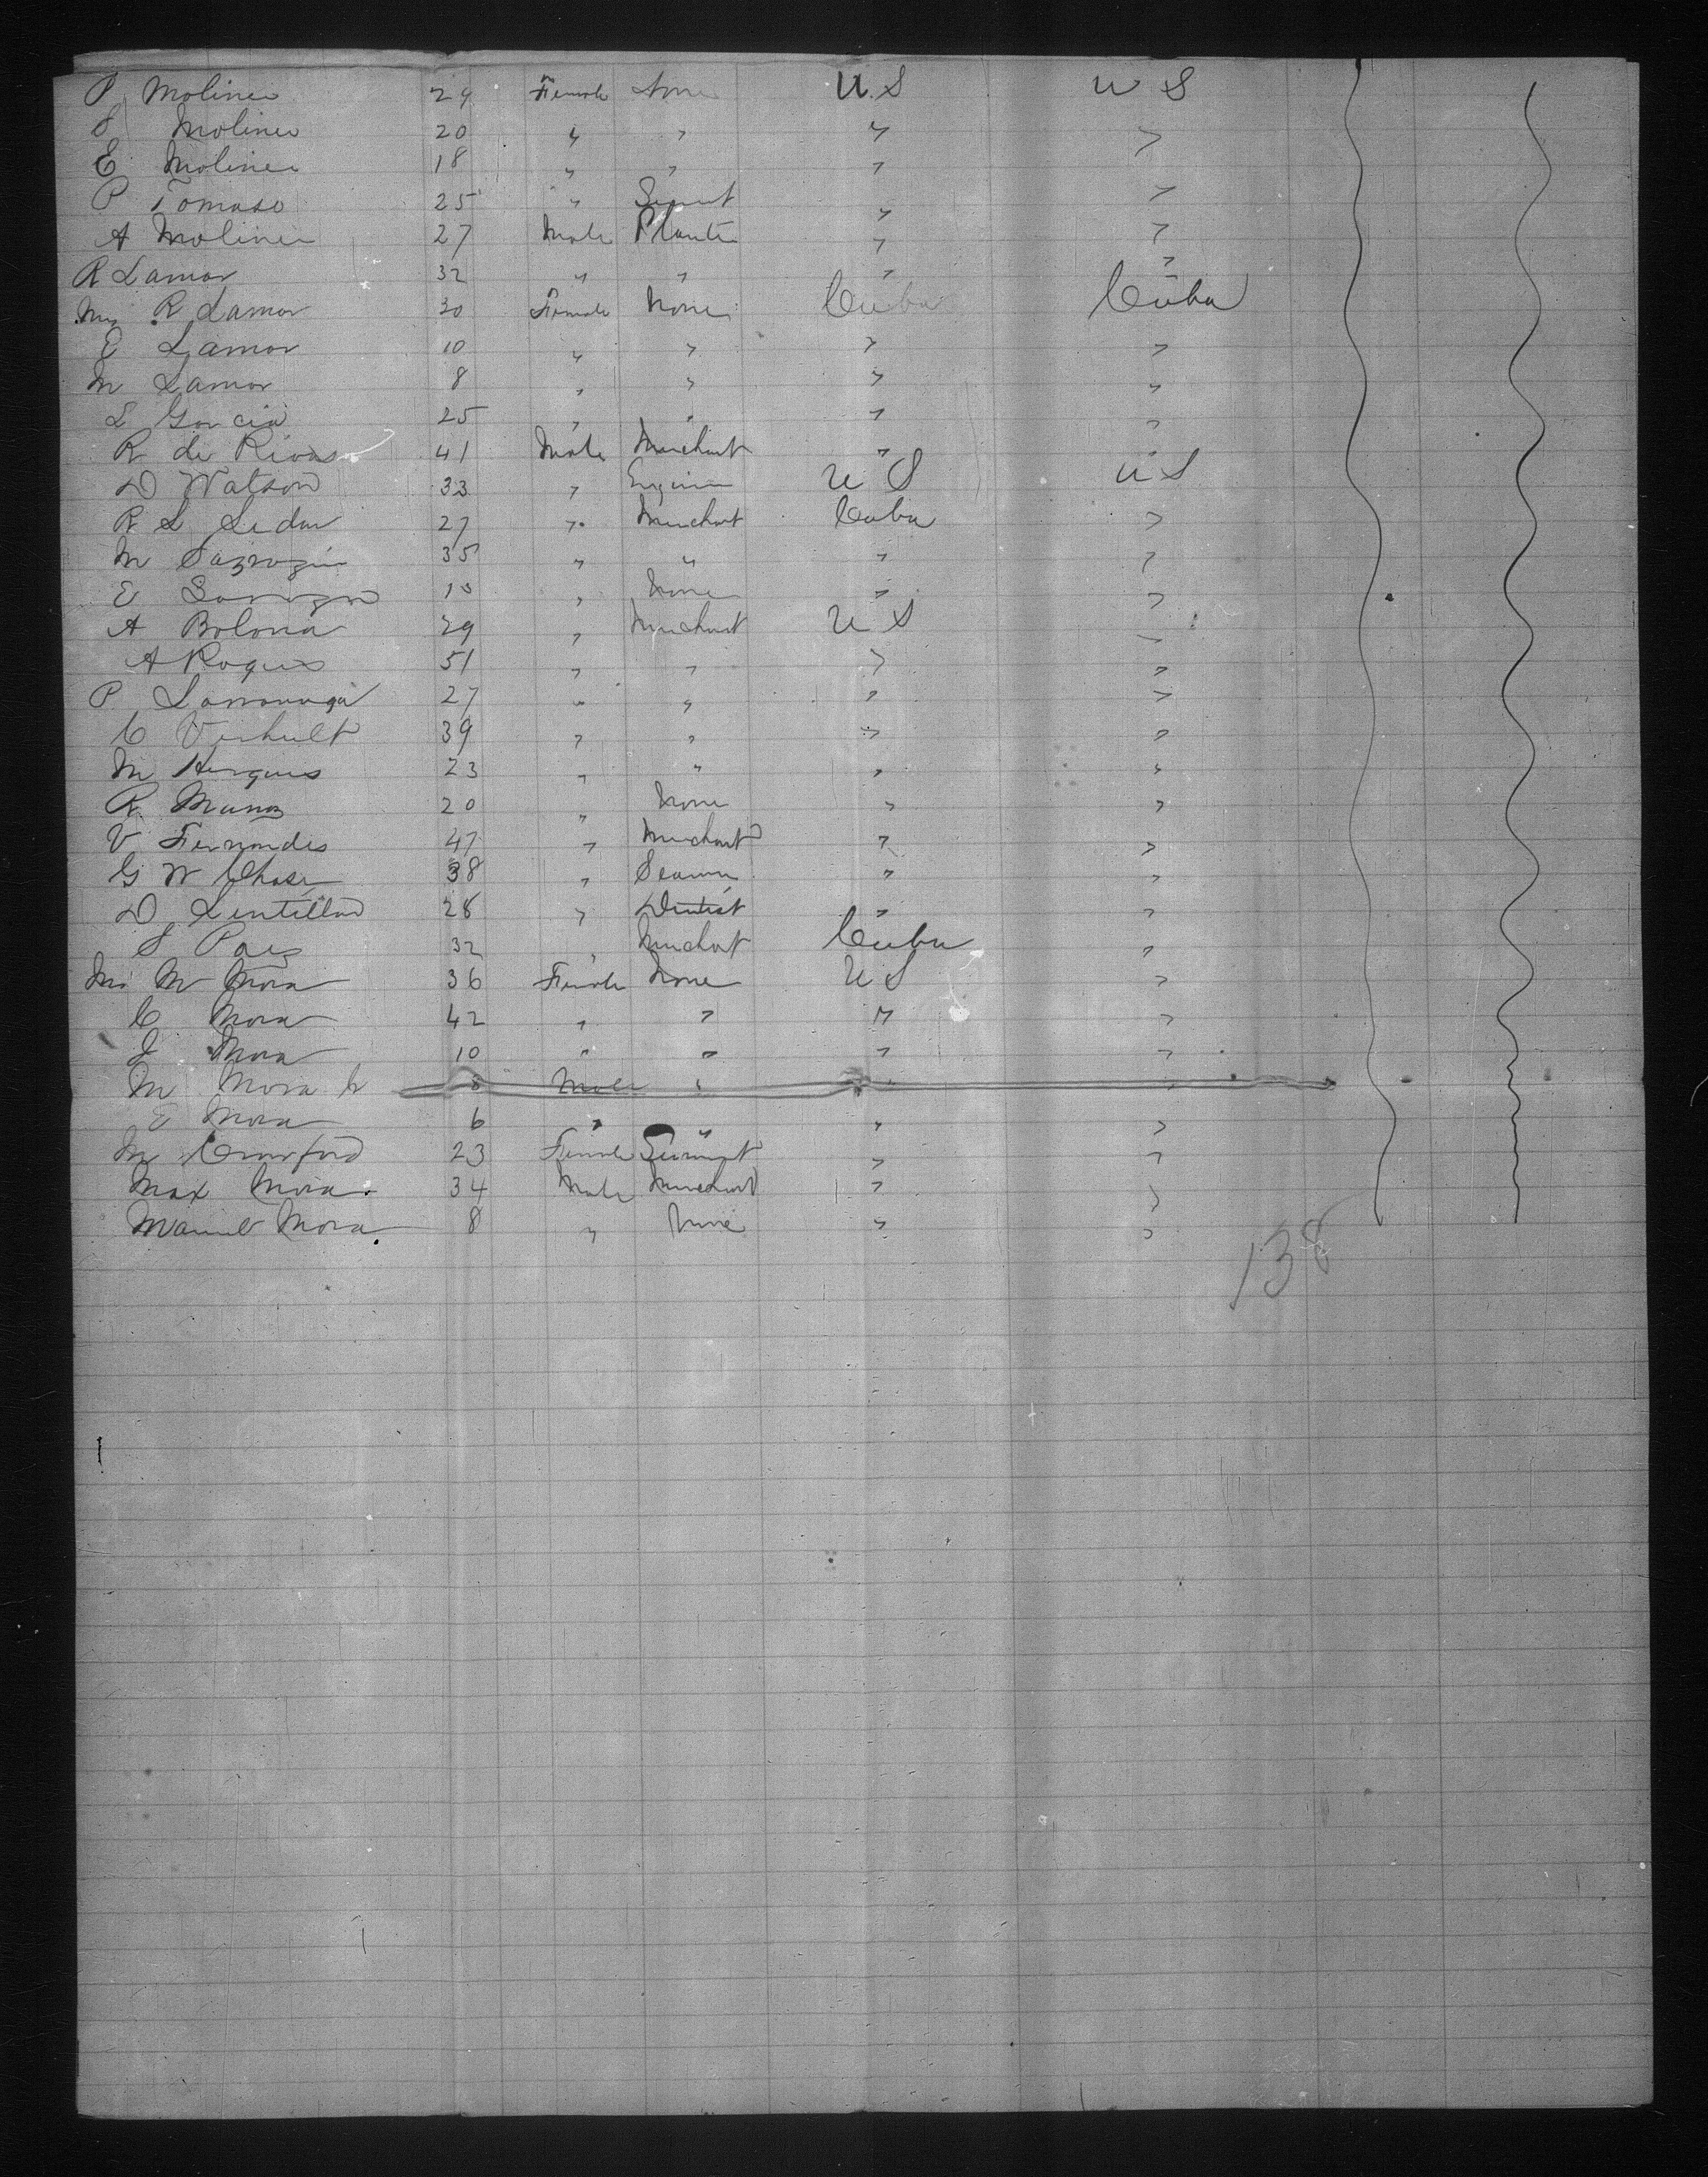 P Moliner 29 Female None U.S U S
S Moliner 20 " " " "
E Moliner 18 " " " "
P Tomaso 25 " Servnt " "
A Moliner 27 Male Planter " "
R Lamar 32 " " " "
Mrs R Lamar 30 Female None Cuba Cuba
E Lamar 10 " " " "
M Lamar 8 " " " "
L Garcia 25 " " " "
R de Rivas 41 Male Merchant "
D Watson 33 " Engineer U S U S
R L 27 " Merchant Cuba "
M 35 " " " "
E " None " "
A Bolona 29 " Merchant U S "
A Roques 51 " " " "
P Larranaga 27 " " " "
C Verhult 39 " " " "
M 23 " " " "
R Munoz 20 " None " "
V Fernandes 47 " Merchant " "
G W Chase 38 " Seaman " "
D 28 " Dentist " "
S Paez 32 " Merchant Cuba "
Mrs M Mora 36 Female None U S "
C Mora 42 " " " "
J Mora 10 " " " "
M Mora Jr 8 Male " " "
E Mora 6 " " " "
M Crawford 23 Female Servant " "
Max Mora 34 Male Merchant " "
Manuel Mora 8 " None " "
138